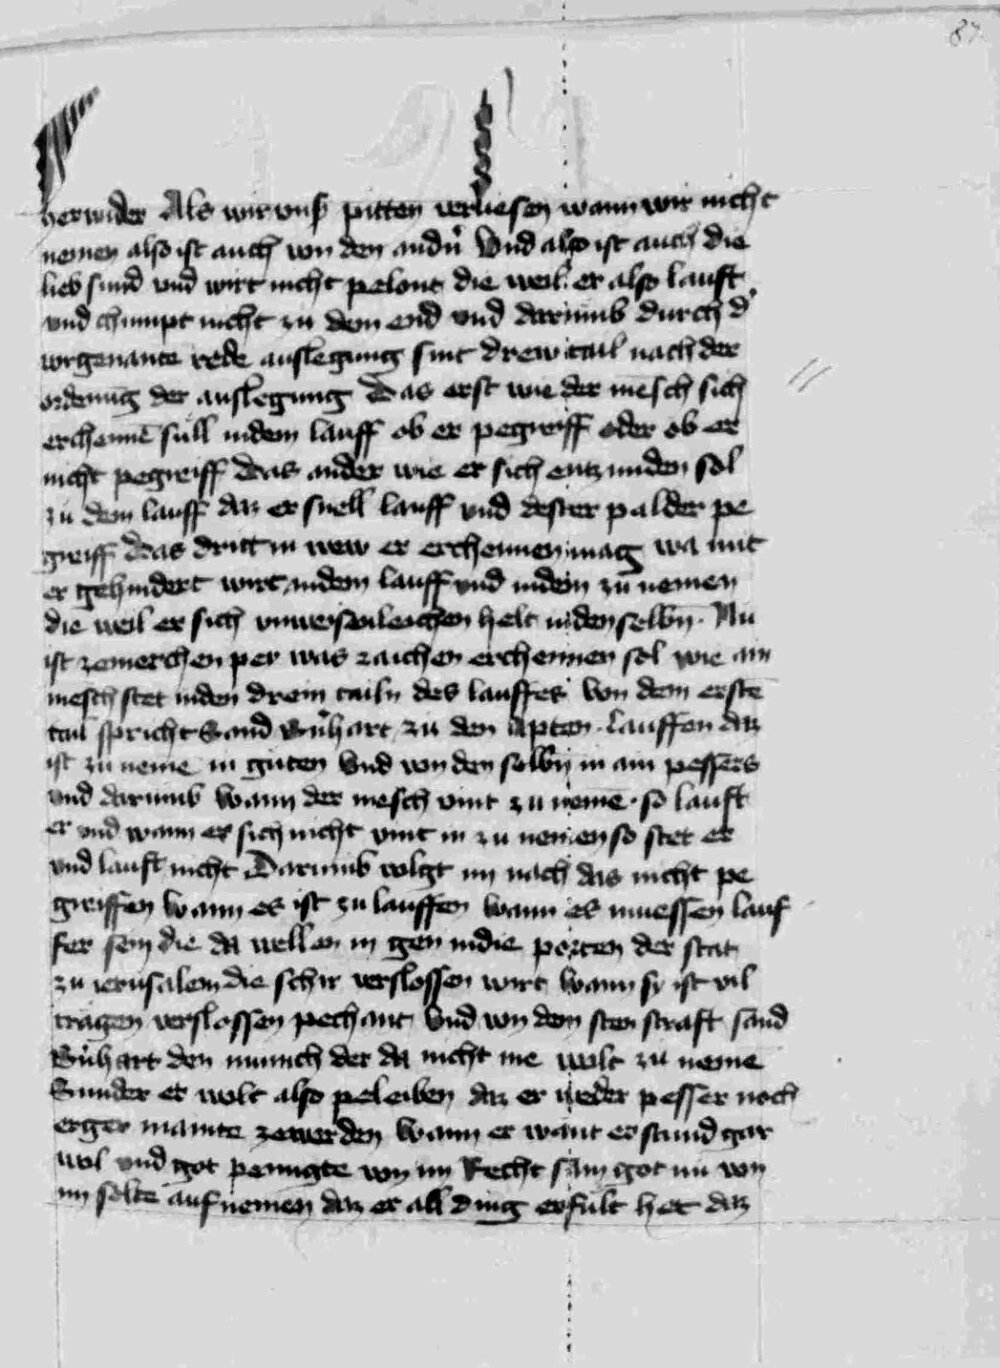 87
herwider Als wir vnß pitten verliesen wann wir nicht
nemen also ist auch von den andn̄ Vnd also ist auch die
lieb sund vnd wirt nicht pelont die weil er also lauft
vnd chumpt nicht zu dem end vnd darumb durch d'
vorgenante rede auslegung sint drew tail nach der
ordenūg der auslegung Das erst wie der mēsch sich
erchennē süll indem lauff ob er pegreiff oder ob er
nicht pegreiff Das ander wie er sich entzunden sol
zu dem lauff daz er snell lauff vnd dester palder pe
greiff Das dritt in wew er erchennen mag wa mit
er gehindert wirt indem lauff vnd indem zu nemen
die weil er sich vnweisleichen helt inden selbn̄ Nu
ist zemerchen per was zaichen erchennen sol wie ain
mesch stet inden drein tailn des lauffes Von dem erstē
tail spricht Sand Bn̄hart zu den Apten lauffen daz
ist zu neme in guten Vnd von den selbn̄ in ain pessers
vnd darumb Wann der mesch vint zu nemē so lauft
er vnd wann er sich nicht vint in zu nemen so stet er
vnd lauft nicht Darumb volgt im nach das nicht pe
greiffen Wann es ist zu lauffen Wann es muessen lauf
fer sein die da wellen in gen indie porten der stat
zu ierusalem die schir verslossen wirt Wann sy ist vil
tragen verslossen pechant Vnd von dem sten straft sand
Bn̄hart den munich der da nicht me wolt zu nemē
Sunder er wolt also peleiben daz er weder pesser noch
erger mainte zewerden Wann er want er stund gar
wol vnd got penugte von im Recht sam got nu von
im solte aufnemen daz er all ding erfült het daz